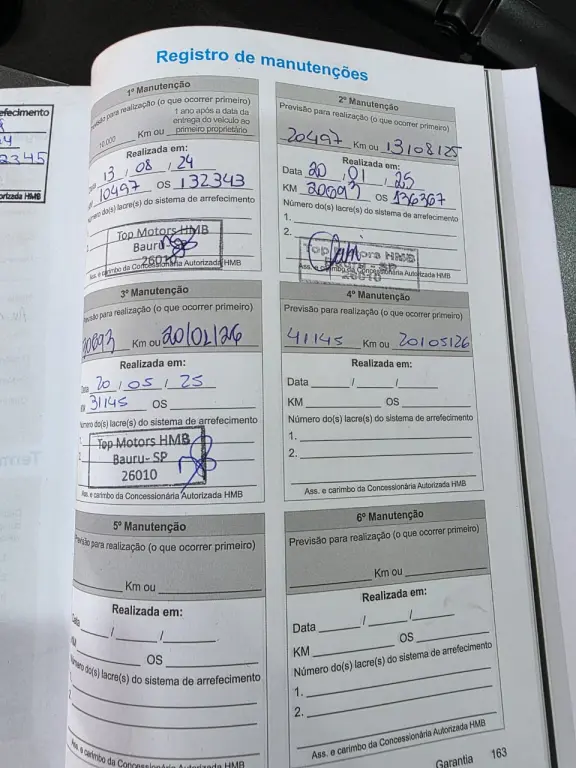 efecimento
2345
orizada HMB
Registro de manutenções
1º Manutenção
Previsão para realização (o que ocorrer primeiro)
10.000 Km ou 1 ano após a data da entrega do veículo ao primeiro proprietário
Realizada em:
Data 13 / 08 / 24
10497 OS 132343
Número do(s) lacre(s) do sistema de arrefecimento
Top Motors HMB
Bauru
26010
Ass. e carimbo da Concessionária Autorizada HMB
2º Manutenção
Previsão para realização (o que ocorrer primeiro)
20497 Km ou 13/08/25
Realizada em:
Data 20 / 01 / 25
KM 20693 OS 136367
Número do(s) lacre(s) do sistema de arrefecimento
1.
2.
Top Motors HMB
- SP
26010
Ass. e carimbo da Concessionária Autorizada HMB
3º Manutenção
Previsão para realização (o que ocorrer primeiro)
Km ou 20/01/26
Realizada em:
Data 20 / 05 / 25
KM 31145 OS
Número do(s) lacre(s) do sistema de arrefecimento
Top Motors HMB
Bauru- SP
26010
Ass. e carimbo da Concessionária Autorizada HMB
4º Manutenção
Previsão para realização (o que ocorrer primeiro)
41145 Km ou 20/05/26
Realizada em:
Data / /
KM OS
Número do(s) lacre(s) do sistema de arrefecimento
1.
2.
Ass. e carimbo da Concessionária Autorizada HMB
5º Manutenção
Previsão para realização (o que ocorrer primeiro)
Km ou
Realizada em:
Data / /
KM OS
Número do(s) lacre(s) do sistema de arrefecimento
1.
2.
Ass. e carimbo da Concessionária Autorizada HMB
6º Manutenção
Previsão para realização (o que ocorrer primeiro)
Km ou
Realizada em:
Data / /
KM OS
Número do(s) lacre(s) do sistema de arrefecimento
1.
2.
Ass. e carimbo da Concessionária Autorizada HMB
Garantia 163